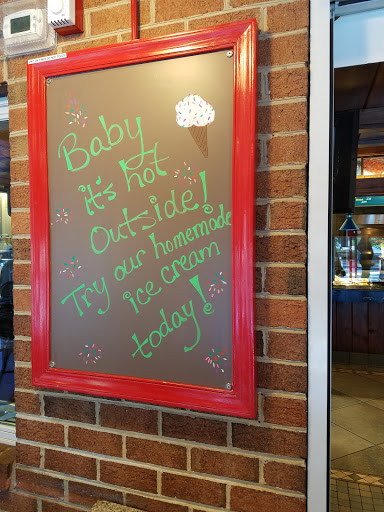 Baby
it's hot
Outside!
Try our homemade
ice cream
today!